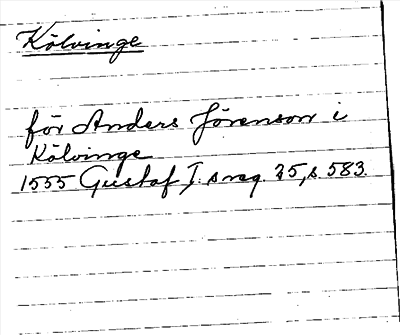 Kölvinge
för Anders Jönsson i
Kölvinge
1555 Gustaf I:s reg 25, s. 583.